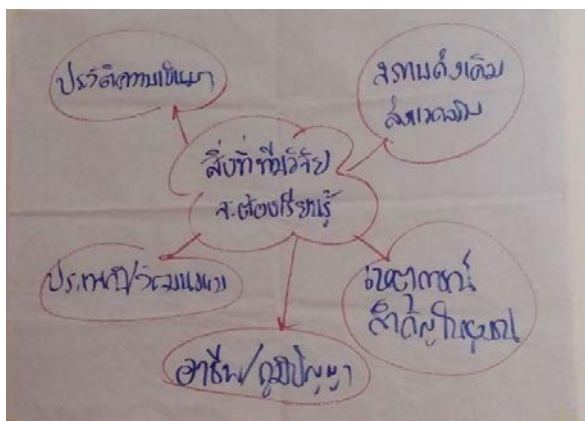 ประวัติความเป็นมา
สถานดั้งเดิม
สิ่งแวดล้อม
สิ่งที่ทีมวิจัย
จะต้องเรียนรู้
ประเพณี/วัฒนธรรม
เหตุการณ์
สำคัญในชุมชน
อาชีพ/ภูมิปัญญา